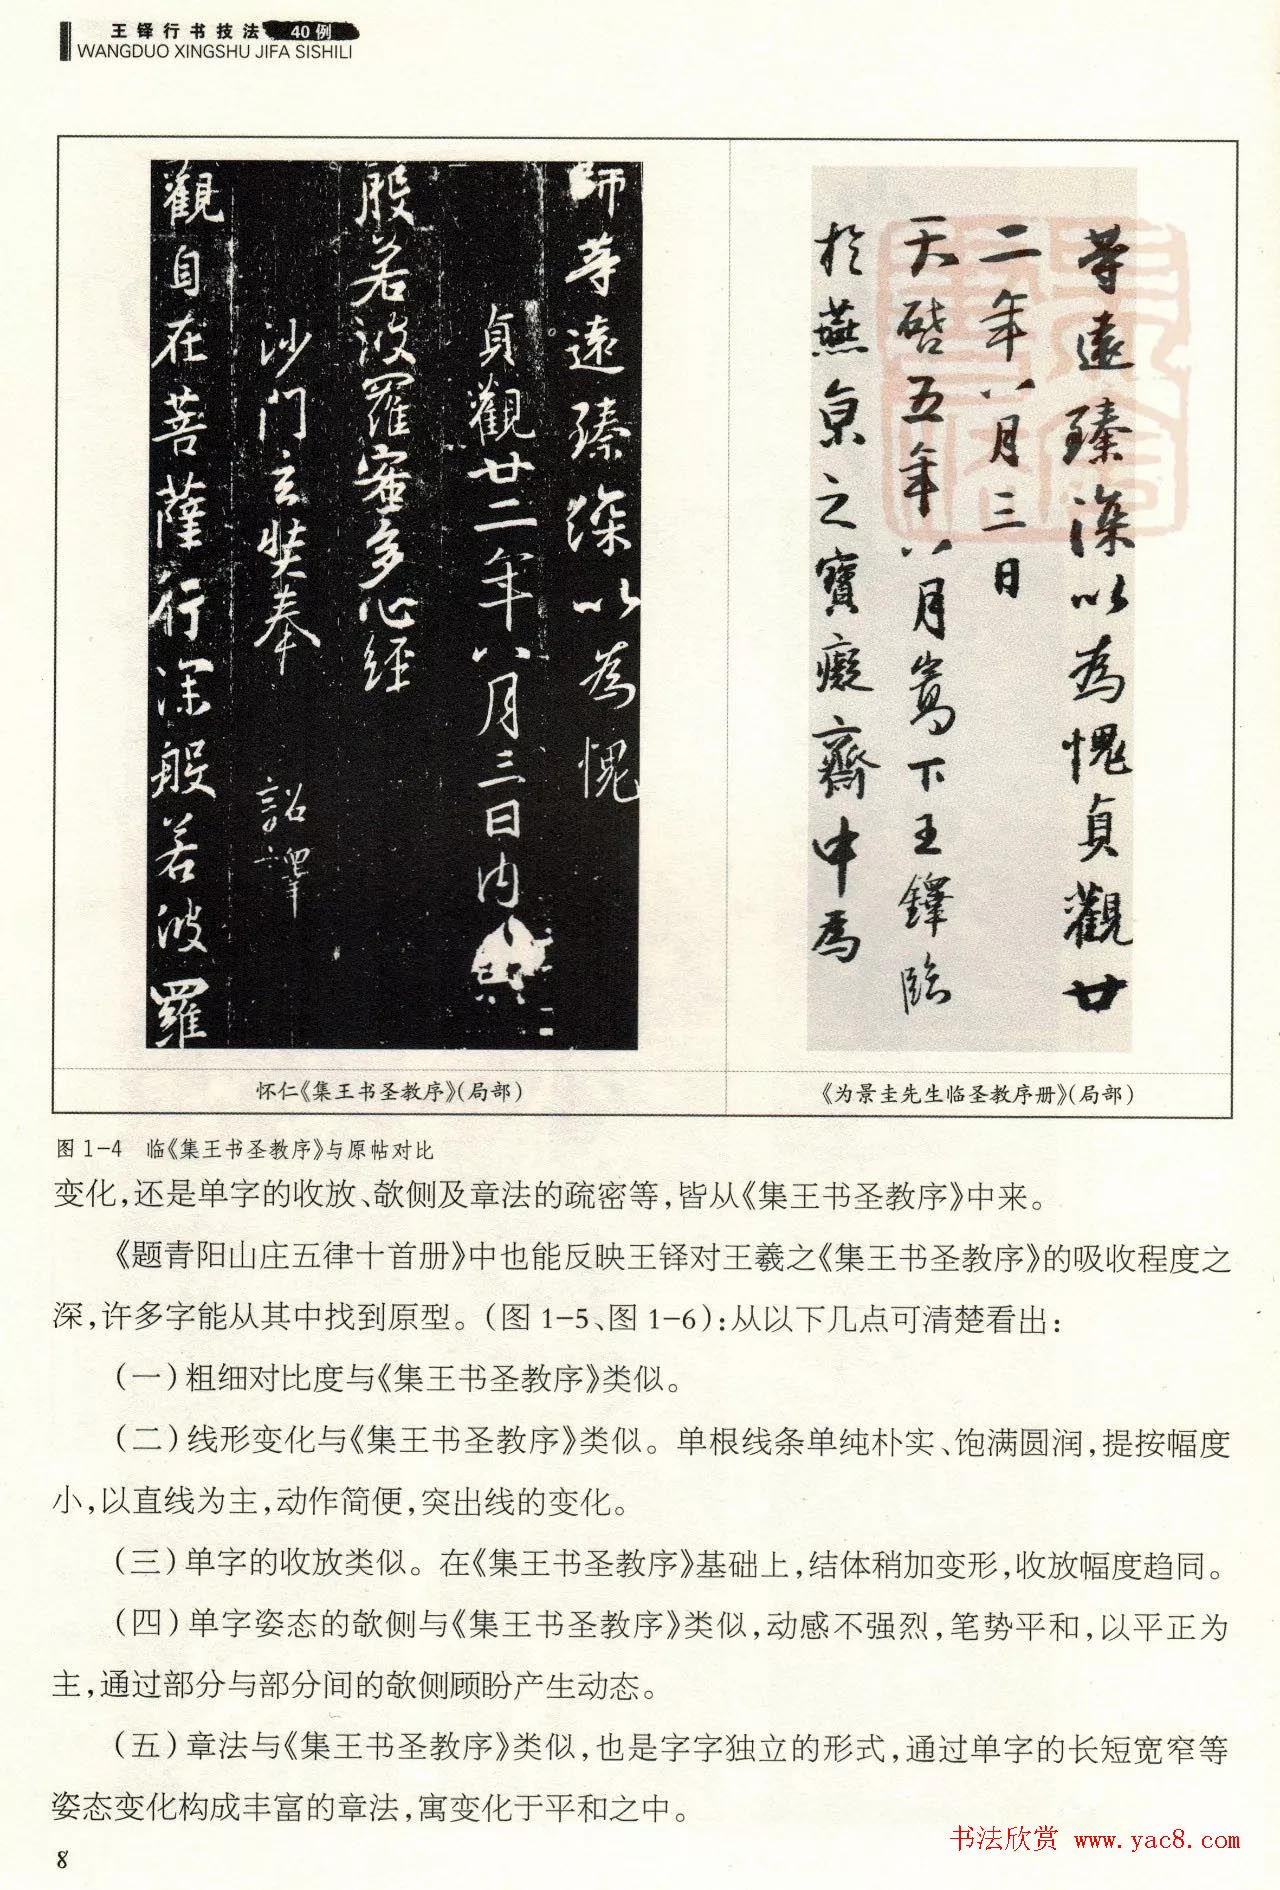 王铎行书技法 40例
WANGDUO XINGSHU JIFA SISHILI
師等遠臻深以為愧
貞觀廿二年八月三日内
般若波羅蜜多心經
沙門玄奘奉
詔譯
觀自在菩薩行深般若波羅
等遠臻深以為愧貞觀廿
二年八月三日
天啓五年八月嵩下王鐸臨
於燕京之寶癡齋中為
怀仁《集王书圣教序》(局部)
《为景圭先生临圣教序册》(局部)
图 1-4 临《集王书圣教序》与原帖对比
变化,还是单字的收放、欹侧及章法的疏密等,皆从《集王书圣教序》中来。
《题青阳山庄五律十首册》中也能反映王铎对王羲之《集王书圣教序》的吸收程度之
深,许多字能从其中找到原型。(图 1-5、图 1-6):从以下几点可清楚看出:
(一)粗细对比度与《集王书圣教序》类似。
(二)线形变化与《集王书圣教序》类似。单根线条单纯朴实、饱满圆润,提按幅度
小,以直线为主,动作简便,突出线的变化。
(三)单字的收放类似。在《集王书圣教序》基础上,结体稍加变形,收放幅度趋同。
(四)单字姿态的欹侧与《集王书圣教序》类似,动感不强烈,笔势平和,以平正为
主,通过部分与部分间的欹侧顾盼产生动态。
(五)章法与《集王书圣教序》类似,也是字字独立的形式,通过单字的长短宽窄等
姿态变化构成丰富的章法,寓变化于平和之中。
书法欣赏 www.yac8.com
8